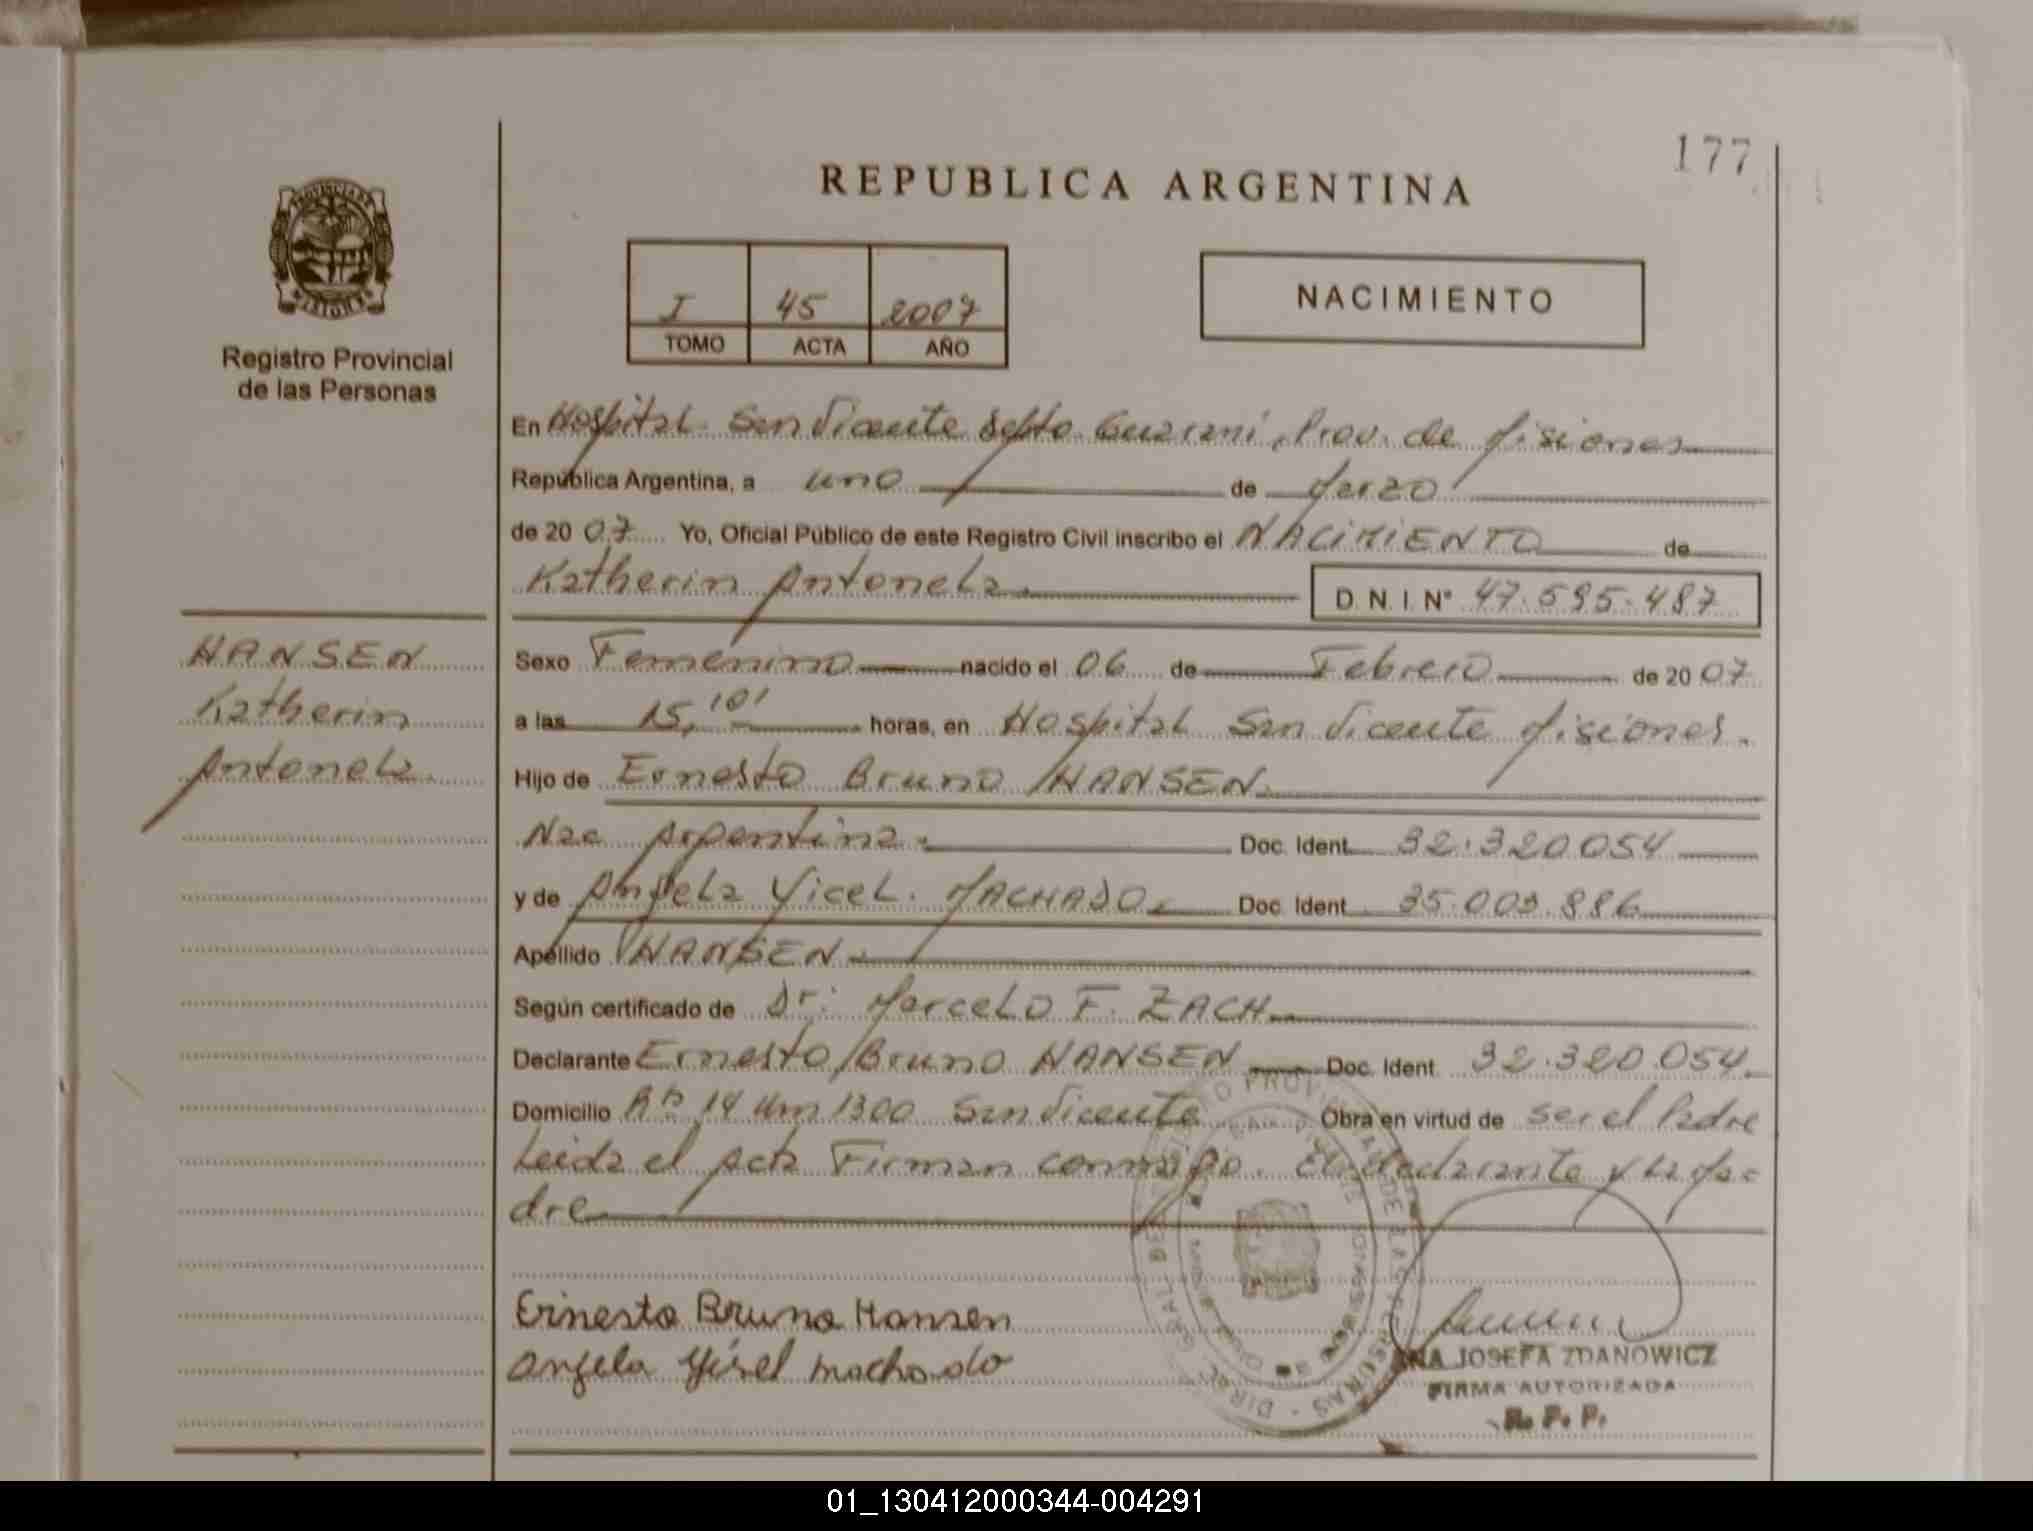 177
REPUBLICA ARGENTINA
PROVINCIA DE
MISIONES
Registro Provincial
de las Personas
I 45 2007
TOMO ACTA AÑO
NACIMIENTO
En Hospital San Vicente Depto Guarani, Prov. de Misiones
República Argentina, a uno de Marzo
de 2007 Yo, Oficial Público de este Registro Civil inscribo el NACIMIENTO de
Katherin Antonela. D.N.I. Nº 47.595.487
HANSEN
Katherin
Antonela.
Sexo Femenino nacido el 06 de Febrero de 2007
a las 15,10' horas, en Hospital San Vicente Misiones.
Hijo de Ernesto Bruno HANSEN.
Nac Argentina. Doc. Ident. 32.320.054
y de Angela Yicel. MACHADO. Doc. Ident. 35.003.886
Apellido HANSEN.
Según certificado de Dr: Marcelo F. ZACH.
Declarante Ernesto Bruno HANSEN Doc. Ident. 32.320.054.
Domicilio Rta 14 Km 1300 San Vicente Obra en virtud de ser el Padre
Leida el Acta Firman conmigo. El declarante y la Ma=
dre
Ernesto Bruno Hansen
Angela Yisel Machado
ANA JOSEFA ZDANOWICZ
FIRMA AUTORIZADA
R. P. P.
01_130412000344-004291